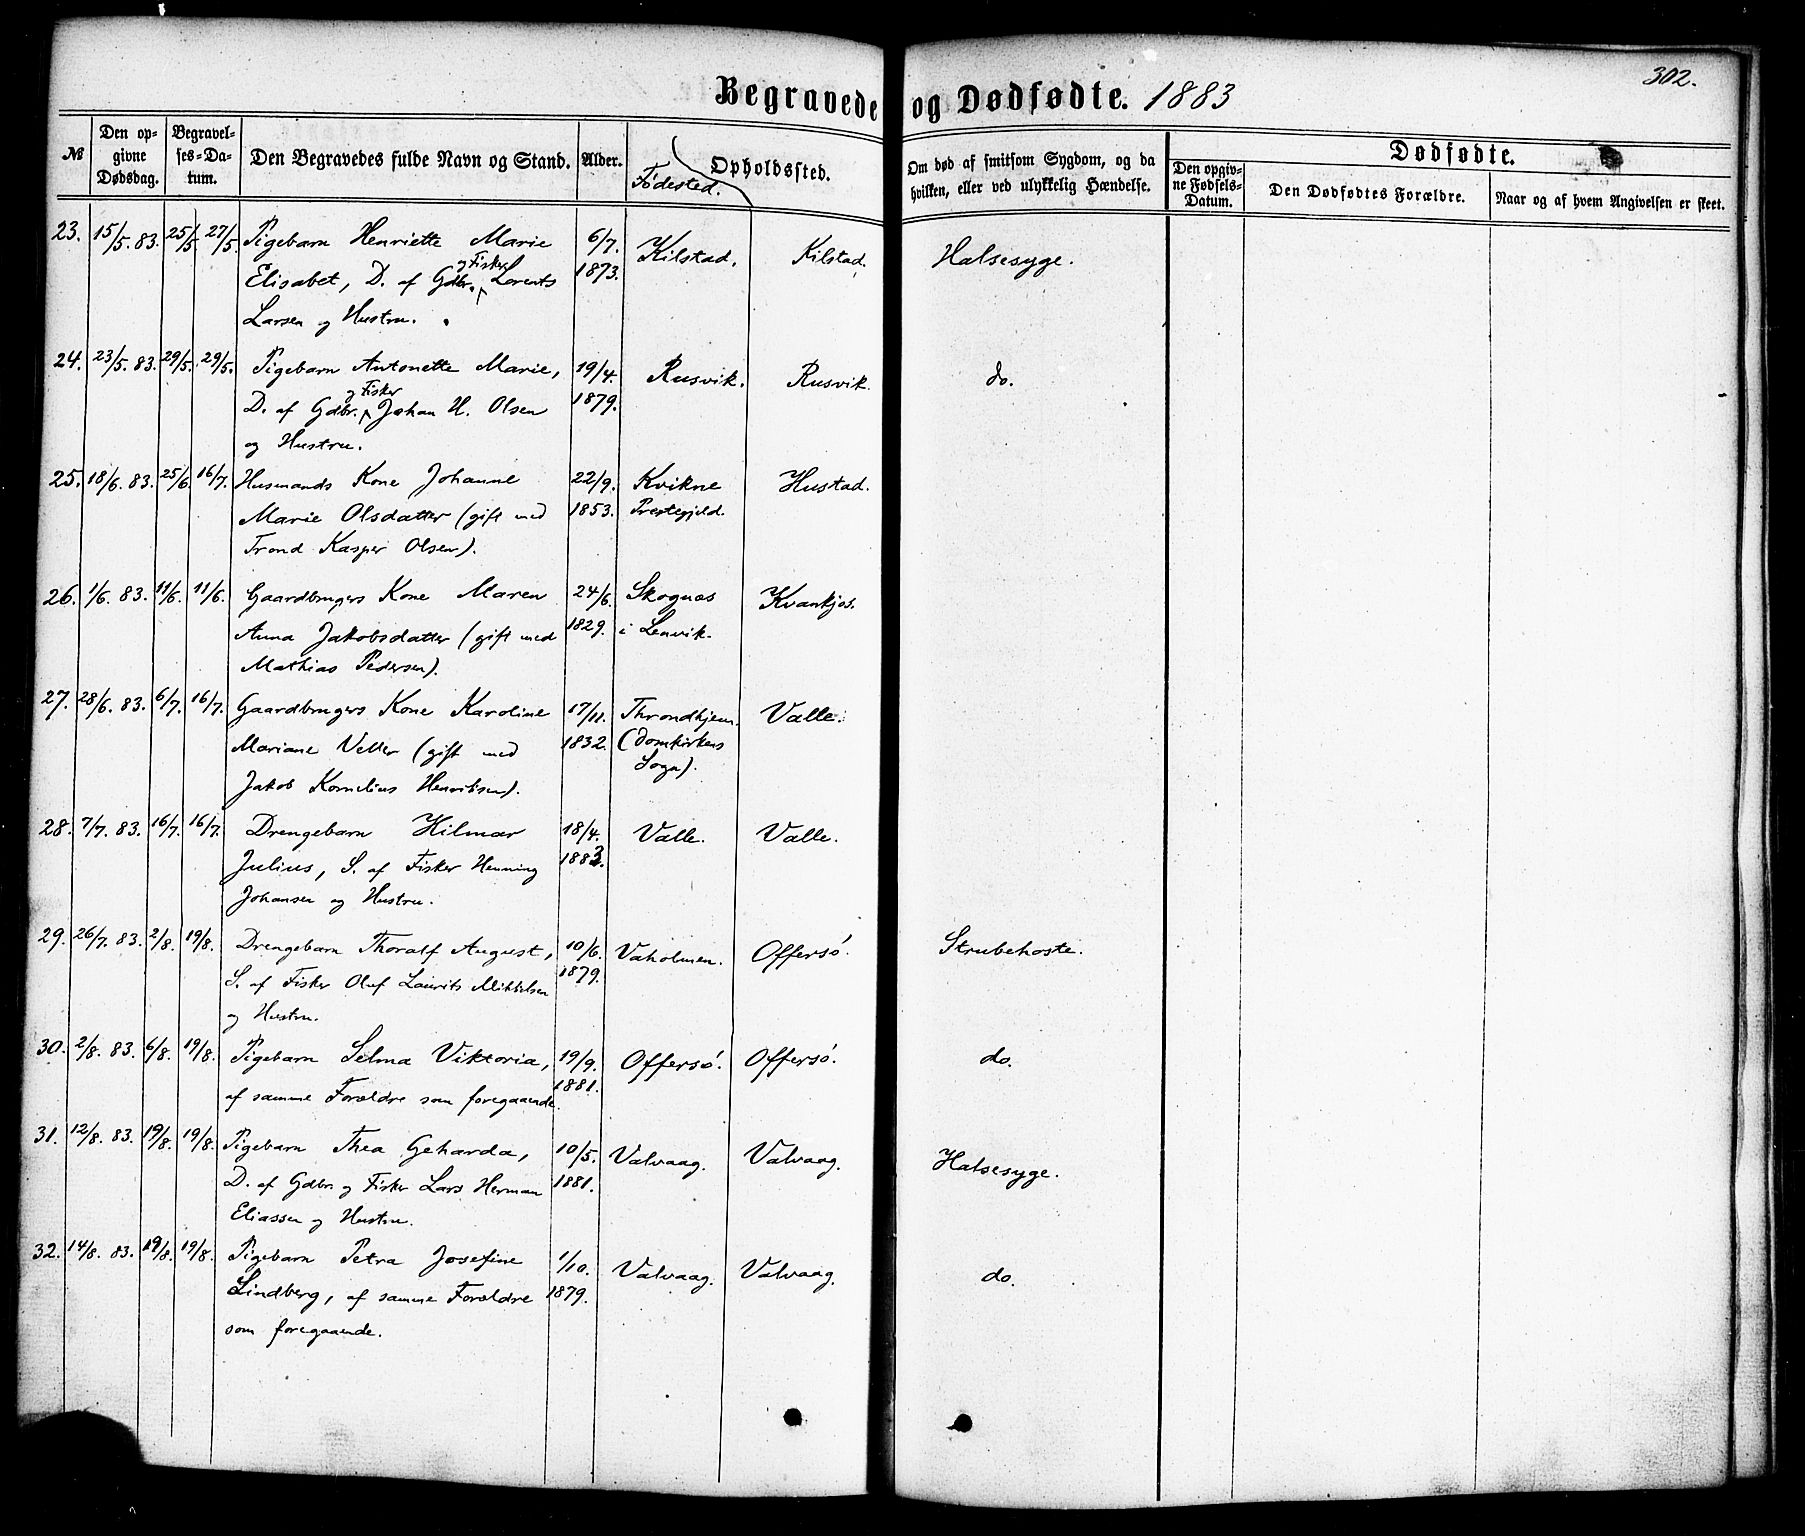 302.
Begravede og Dødfødte. 1883
№ | Den opgivne Dødsdag. | Begravelses-Datum. | Den Begravedes fulde Navn og Stand. | Alder. | Fødested. | Opholdssted. | Om død af smitsom Sygdom, og da hvilken, eller ved ulykkelig Hændelse. | Dødfødte. | Den opgivne Fødsels-Datum. | Den Dødfødtes Forældre. | Naar og af hvem Angivelsen er skeet.
23. 15/5. 83. 25/5 27/5. Pigebarn Henriette Marie 6/7. Kilstad. Kilstad. Halsesyge.
og Fisker
Elisabet, D. af Gdbr. Lorents 1873.
Larsen og Hustru.
24. 23/5. 83. 29/5. 29/5. Pigebarn Antonette Marie, 19/4. Rusvik. Rusvik. do.
og Fisker
D. af Gdbr. Johan H. Olsen 1879.
og Hustru.
25. 18/6. 83. 25/6. 16/7. Husmands Kone Johanne 22/9. Kvikne Hustad.
Marie Olsdatter (gift med 1853. Prestegjeld.
Trond Kasper Olsen).
26. 1/6. 83. 11/6. 11/6. Gaardbrugers Kone Maren 24/6. Skognæs Kvankjos.
Anna Jakobsdatter (gift med 1829. i Lenvik.
Mathias Pedersen).
27. 28/6. 83. 6/7. 16/7. Gaardbrugers Kone Karoline 17/11. Throndhjem Valle.
Mariane Veller (gift med 1832. (Domkirkens
Jakob Kornelius Henriksen). Sogn).
28. 7/7. 83. 16/7. 16/7. Drengebarn Hilmar 18/4. Valle. Valle.
Julius, S. af Fisker Henning 1883.
Johansen og Hustru.
29. 26/7. 83. 2/8. 19/8. Drengebarn Thoralf August, 10/6. Vaholmen. Offersö. Strubehoste.
S. af Fisker Oluf Laurits Mikkelsen 1879.
og Hustru.
30. 2/8. 83. 6/8. 19/8. Pigebarn Selma Viktoria, 19/9. Offersö. Offersö. do.
af samme Forældre som foregaaende. 1881.
31. 12/8. 83. 19/8. 19/8. Pigebarn Thea Geharda, 10/5. Valvaag. Valvaag. Halsesyge.
D. af Gdbr. og Fisker Lars Herman 1881.
Eliassen og Hustru.
32. 14/8. 83. 19/8. 19/8. Pigebarn Petra Josefine 1/10. Valvaag. Valvaag. do.
Lindberg, af samme Forældre 1879.
som foregaaende.